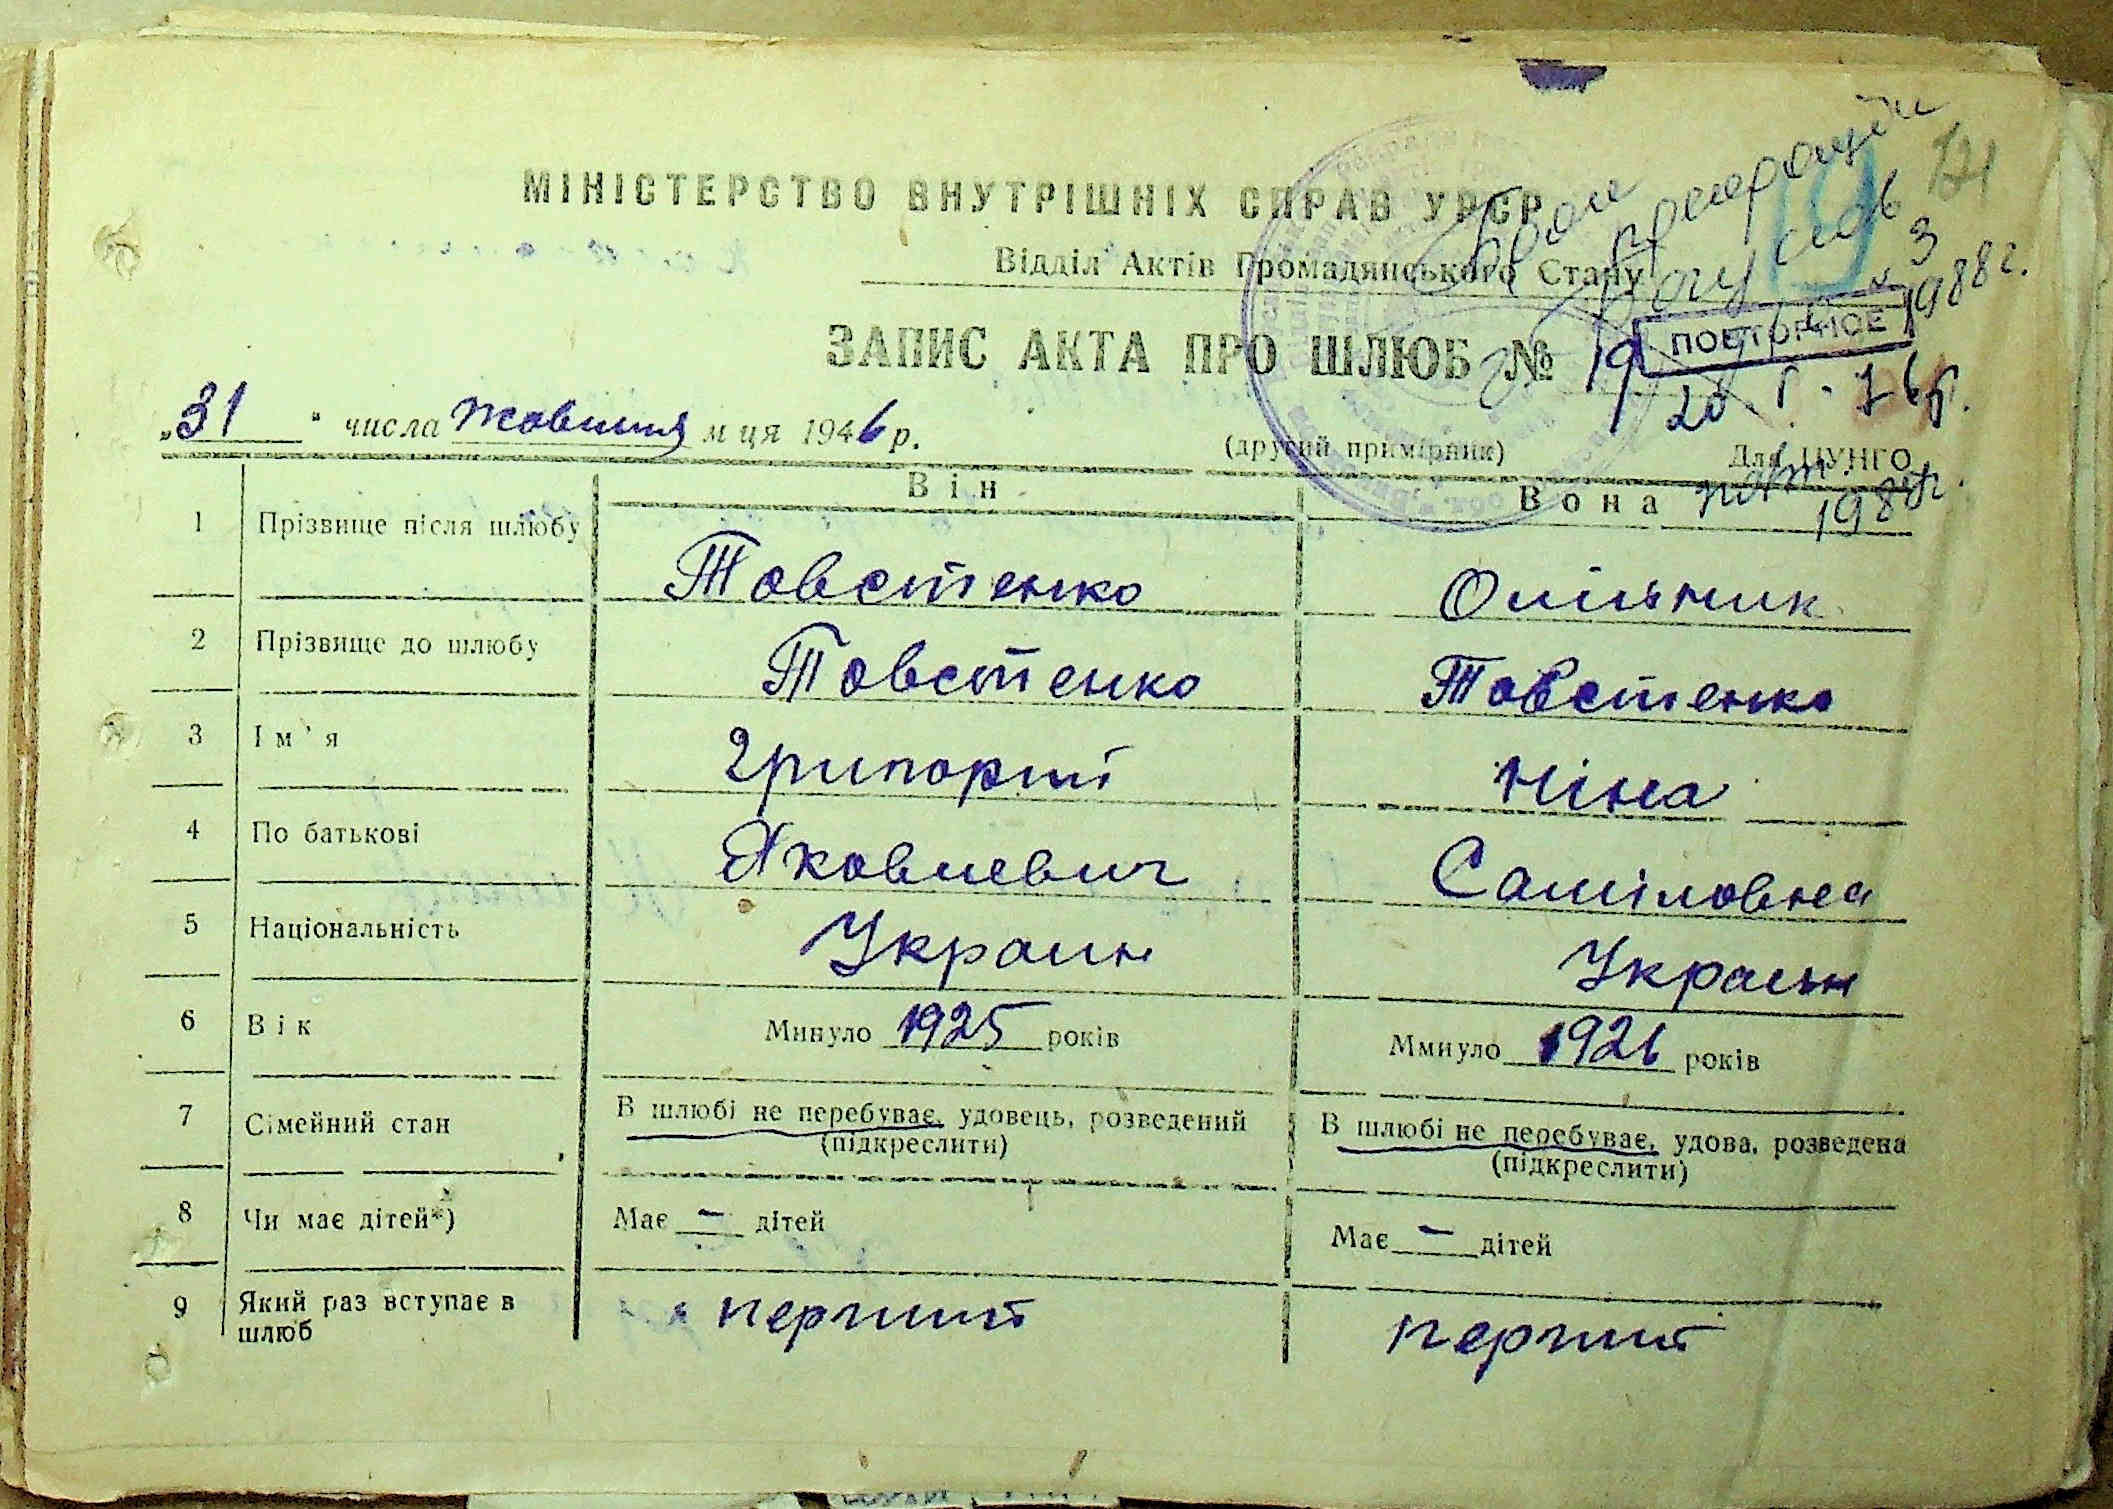 МІНІСТЕРСТВО ВНУТРІШНІХ СПРАВ УРСР
Відділ Актів Громадянського Стану
ЗАПИС АКТА ПРО ШЛЮБ № 19
ПОВТОРНОЕ
1988г.
„31“ числа жовтня м ця 1946 р.
(другий примірник)
Для ЦУНГО
1988г.
Він Вона
1 Прізвище після шлюбу Товстенко Олійник
2 Прізвище до шлюбу Товстенко Товстенко
3 Ім'я Григорій Ніна
4 По батькові Яковлевич Саміловна
5 Національність Украин Украин
6 Вік Минуло 1925 років Ммнуло 1926 років
7 Сімейний стан В шлюбі не перебуває, удовець, розведений В шлюбі не перебуває, удова, розведена
(підкреслити) (підкреслити)
8 Чи має дітей*) Має — дітей Має — дітей
9 Який раз вступає в перший перший
шлюб